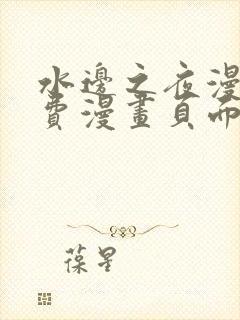 水邊之夜漫
費漫畫頁面
葆星